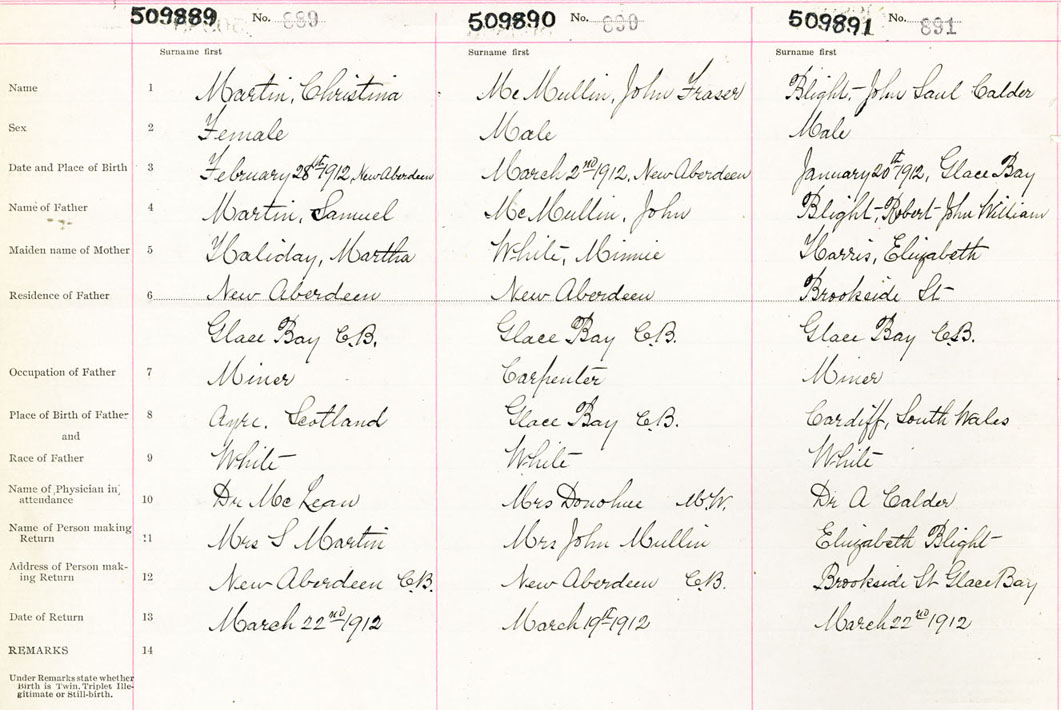 509889 No. 889 509890 No. 890 509891 No. 891
Surname first Surname first Surname first
Name 1 Martin, Christina McMullin, John Fraser Blight, John Saul Calder
Sex 2 Female Male Male
Date and Place of Birth 3 February 28th 1912, New Aberdeen March 2nd 1912, New Aberdeen January 20th 1912, Glace Bay
Name of Father 4 Martin, Samuel McMullin, John Blight, Robert John William
Maiden name of Mother 5 Haliday, Martha White, Minnie Harris, Elizabeth
Residence of Father 6 New Aberdeen New Aberdeen Brookside St
Glace Bay C.B. Glace Bay C.B. Glace Bay C.B.
Occupation of Father 7 Miner Carpenter Miner
Place of Birth of Father 8 Ayre. Scotland Glace Bay C.B. Cardiff, South Wales
and
Race of Father 9 White White White
Name of Physician in
attendance 10 Dr McLean Mrs Donohue M.W. Dr A Calder
Name of Person making
Return 11 Mrs S Martin Mrs John Mullin Elizabeth Blight
Address of Person mak-
ing Return 12 New Aberdeen C.B. New Aberdeen C.B. Brookside St Glace Bay
Date of Return 13 March 22nd 1912 March 19th 1912 March 22nd 1912
REMARKS 14
Under Remarks state whether
Birth is Twin, Triplet Ille-
gitimate or Still-birth.